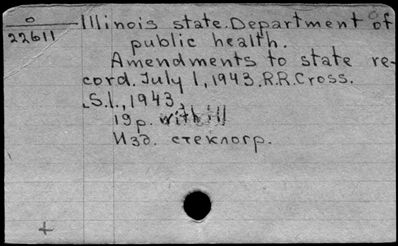 o
22611
Illinois state. Department of
public health.
Amendments to state re-
cord. July 1, 1943. R.R. Cross.
S.l., 1943.
19 p. with ill
Изд. стеклогр.
+